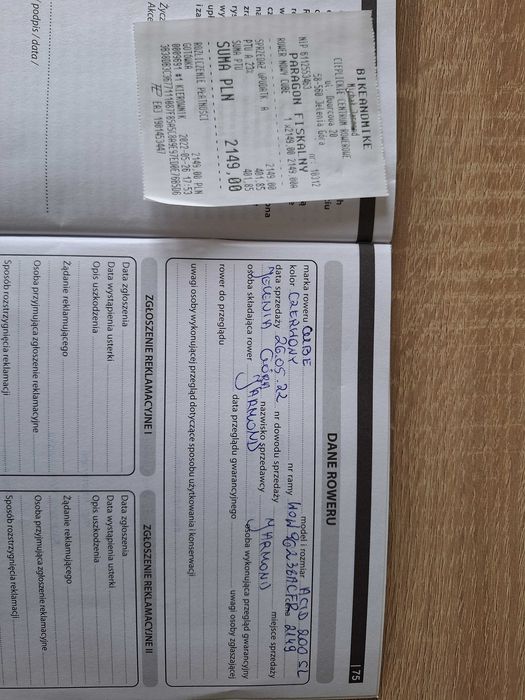 BIKEANDMIKE
CIEPLICKIE CENTRUM ROWEROWE
ul. Dworcowa 20
58-560 Jelenia Góra
NIP 6112553463 nr: 10312
PARAGON FISKALNY
ROWER NOWY CUBE 1 x2149.00 2149.00A
SPRZEDAŻ OPODATK. A 2149.00
PTU A 23% 401.85
SUMA PTU 401.85
SUMA PLN 2149,00
ROZLICZENIE PŁATNOŚCI
GOTÓWKA 2149.00 PLN
#1 KIEROWNIK 2022-05-26 17:53
EAJ 1901453447
podpis / data /
DANE ROWERU
marka roweru CUBE model i rozmiar ACID 200 SL
kolor CZERWONY nr ramy
data sprzedaży 26.05.22 nr dowodu sprzedaży cena 2149
JELENIA GÓRA nazwisko sprzedawcy JARMOND miejsce sprzedaży
osoba składająca rower JARMOND osoba wykonująca przegląd gwarancyjny
rower do przeglądu data przeglądu gwarancyjnego uwagi osoby zgłaszającej
uwagi osoby wykonującej przegląd dotyczące sposobu użytkowania i konserwacji
ZGŁOSZENIE REKLAMACYJNE I
Data zgłoszenia
Data wystąpienia usterki
Opis uszkodzenia
Żądanie reklamującego
Osoba przyjmująca zgłoszenie reklamacyjne
Sposób rozstrzygnięcia reklamacji
ZGŁOSZENIE REKLAMACYJNE II
Data zgłoszenia
Data wystąpienia usterki
Opis uszkodzenia
Żądanie reklamującego
Osoba przyjmująca zgłoszenie reklamacyjne
Sposób rozstrzygnięcia reklamacji
75